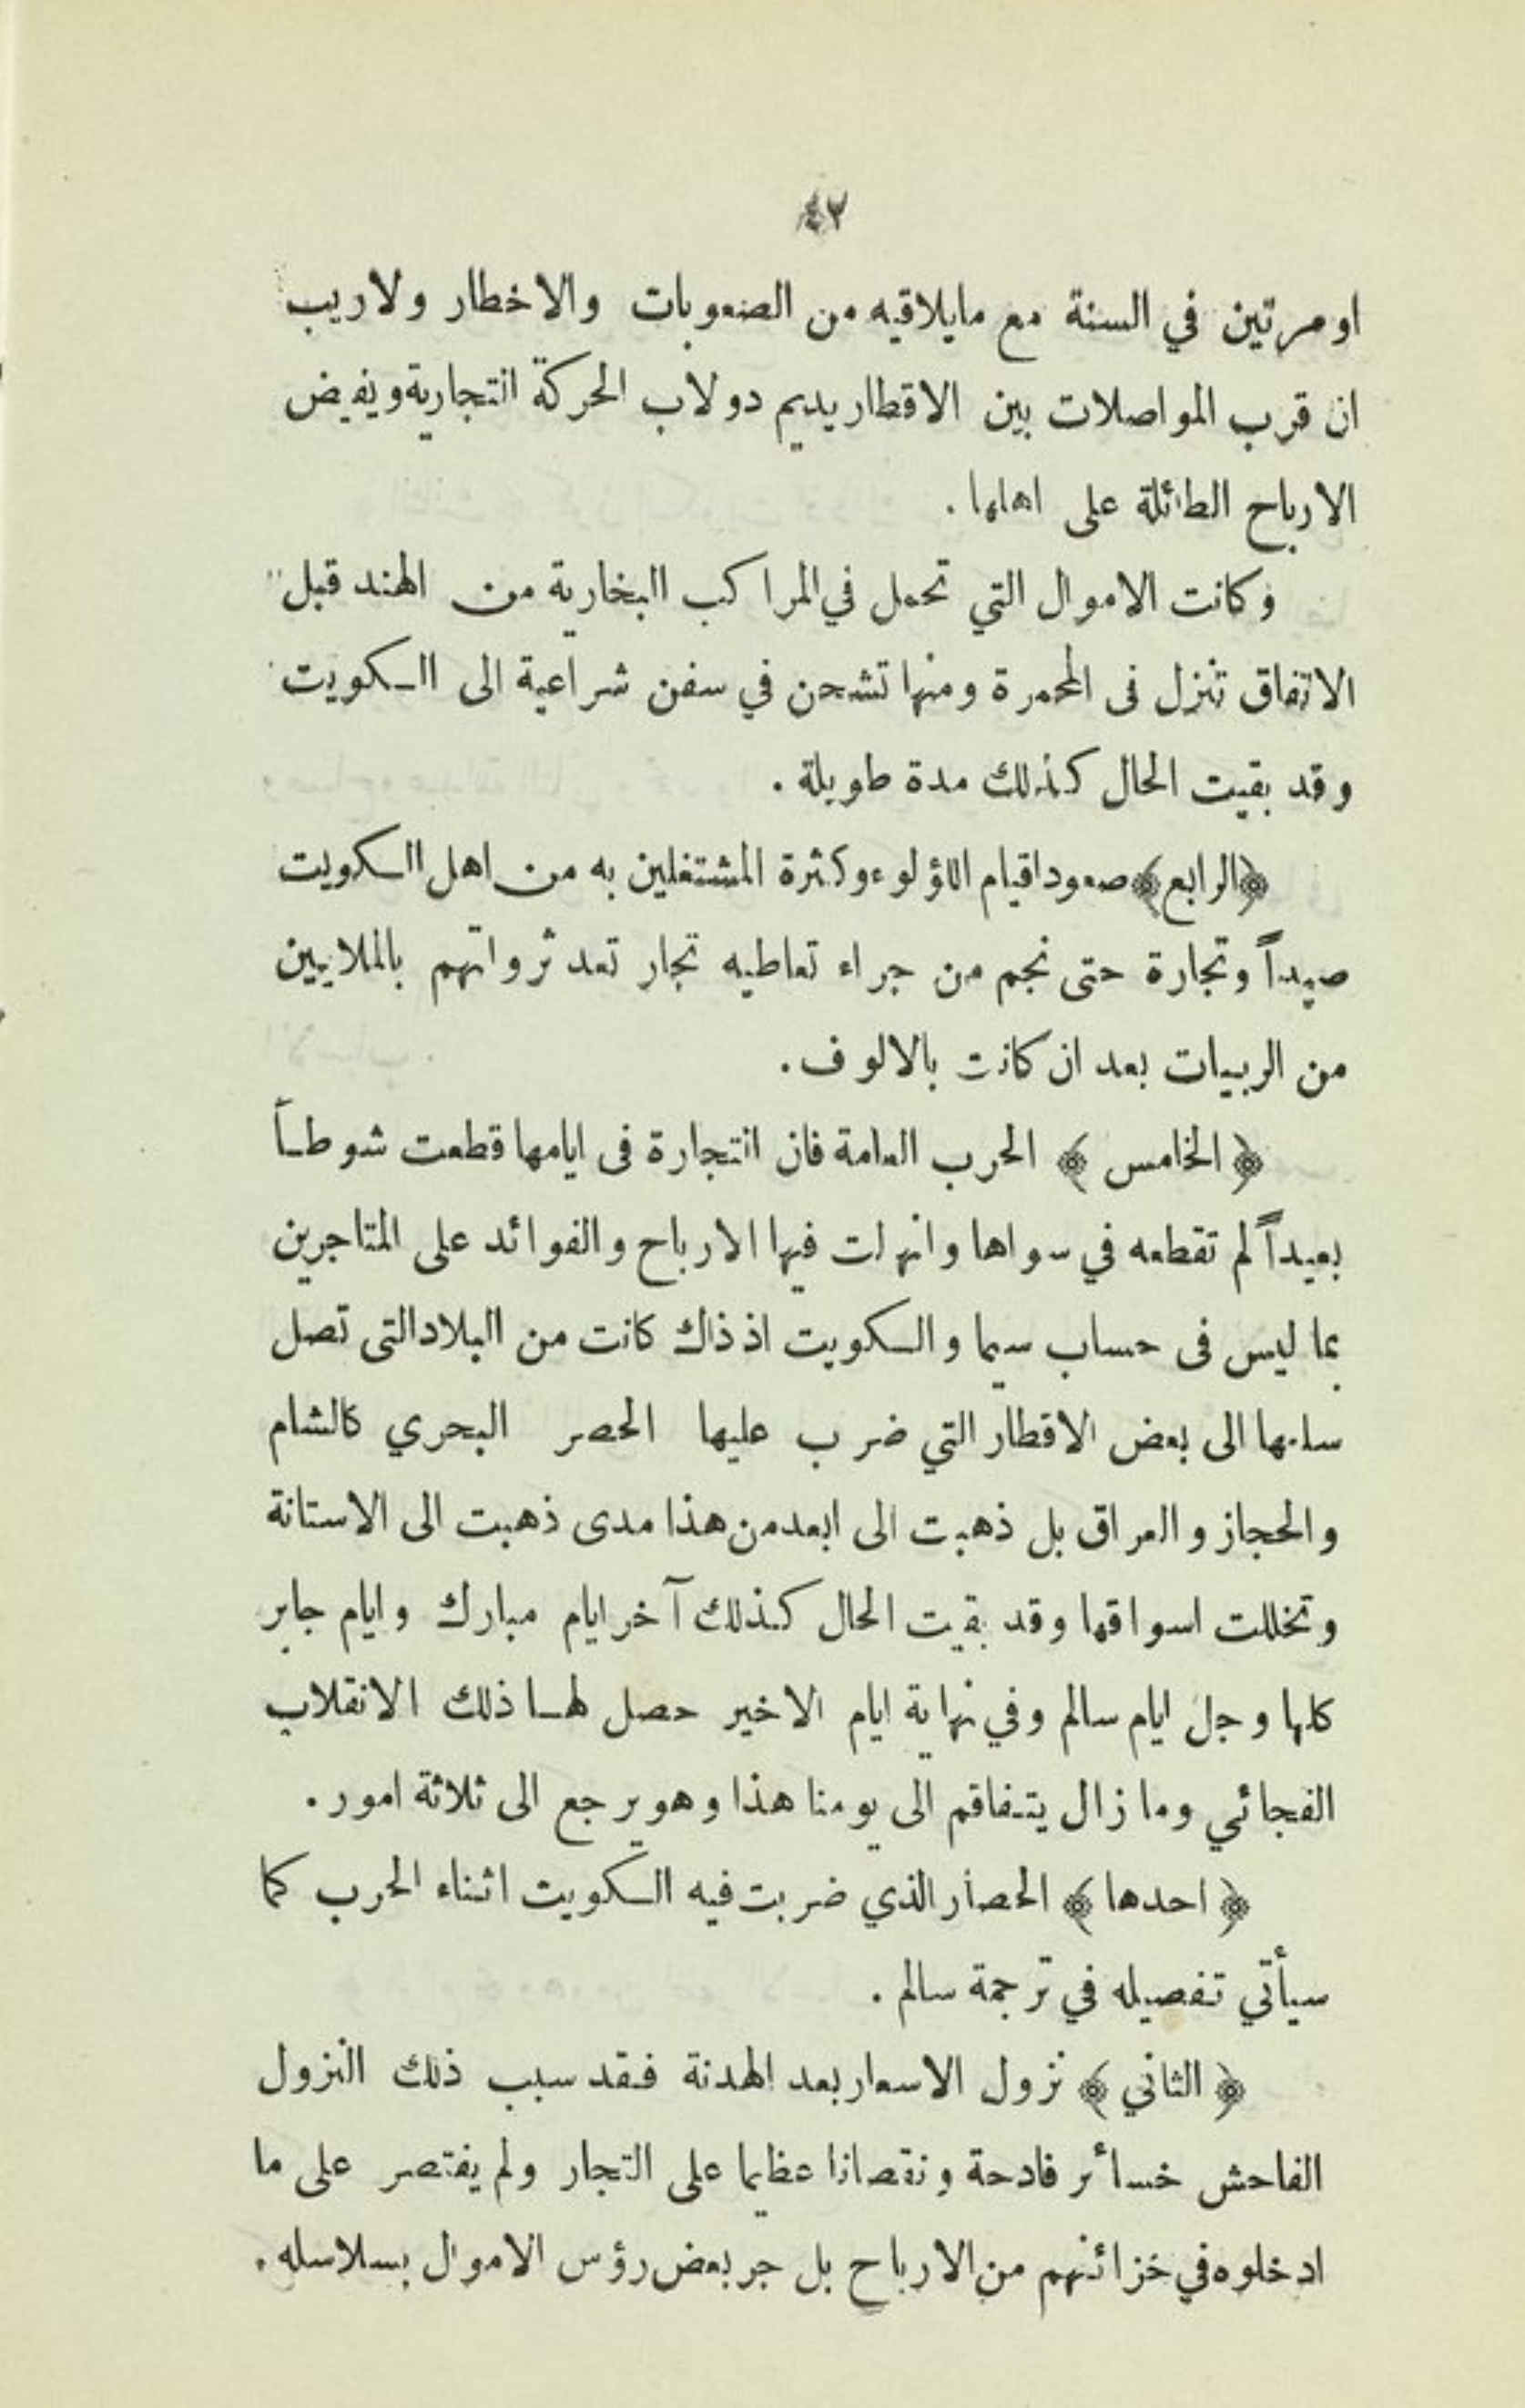 ٤٢
او مرتين في السنة مع مايلاقيه من الصعوبات والاخطار ولاريب
ان قرب المواصلات بين الاقطار يديم دولاب الحركة التجارية ويفيض
الارباح الطائلة على اهلها .
وكانت الاموال التي تحمل في المراكب البخارية من الهند قبل
الاتفاق تنزل فى المحمرة ومنها تشحن في سفن شراعية الى الكويت
وقد بقيت الحال كذلك مدة طويلة .
﴿الرابع﴾ صعود اقيام اللؤلوء وكثرة المشتغلين به من اهل الكويت
صيداً وتجارة حتى نجم من جراء تعاطيه تجار تعد ثرواتهم بالملايين
من الربيات بعد ان كانت بالالوف .
﴿ الخامس ﴾ الحرب العامة فان التجارة فى ايامها قطعت شوطاً
بعيداً لم تقطعه في سواها وانهلت فيها الارباح والفوائد على المتاجرين
بما ليس فى حساب سيما والكويت اذ ذاك كانت من البلاد التى تصل
سابها الى بعض الاقطار التي ضرب عليها الحصر البحري كالشام
والحجاز والعراق بل ذهبت الى ابعد من هذا مدى ذهبت الى الاستانة
وتخللت اسواقها وقد بقيت الحال كذلك آخر ايام مبارك وايام جابر
كلها وجل ايام سالم وفي نهاية ايام الاخير حصل لها ذلك الانقلاب
الفجائي وما زال يتفاقم الى يومنا هذا وهو يرجع الى ثلاثة امور .
﴿ احدها ﴾ الحصار الذي ضربت فيه الكويت اثناء الحرب كما
سيأتي تفصيله في ترجمة سالم .
﴿ الثاني ﴾ نزول الاسعار بعد الهدنة فقد سبب ذلك النزول
الفاحش خسائر فادحة ونقصانا عظيما على التجار ولم يقتصر على ما
ادخلوه في خزائنهم من الارباح بل جر بعض رؤس الاموال بسلاسله .